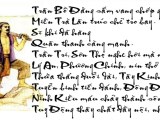 Trần Bồ Đằng cầm vang chớp
Miền Trà Lân trúc chẻ tro bay.
Sĩ khí đã hăng
Quân thanh càng mạnh.
Trần Trí, Sơn Thọ nghe hơi mà
Lý An, Phương Chính, nín thở
Thừa thắng đuổi dài, Tây Kinh
Tuyển binh tiến đánh, Đông Đ
Ninh Kiều máu chảy thành sông
Tụy Động thây chất đầy nội,